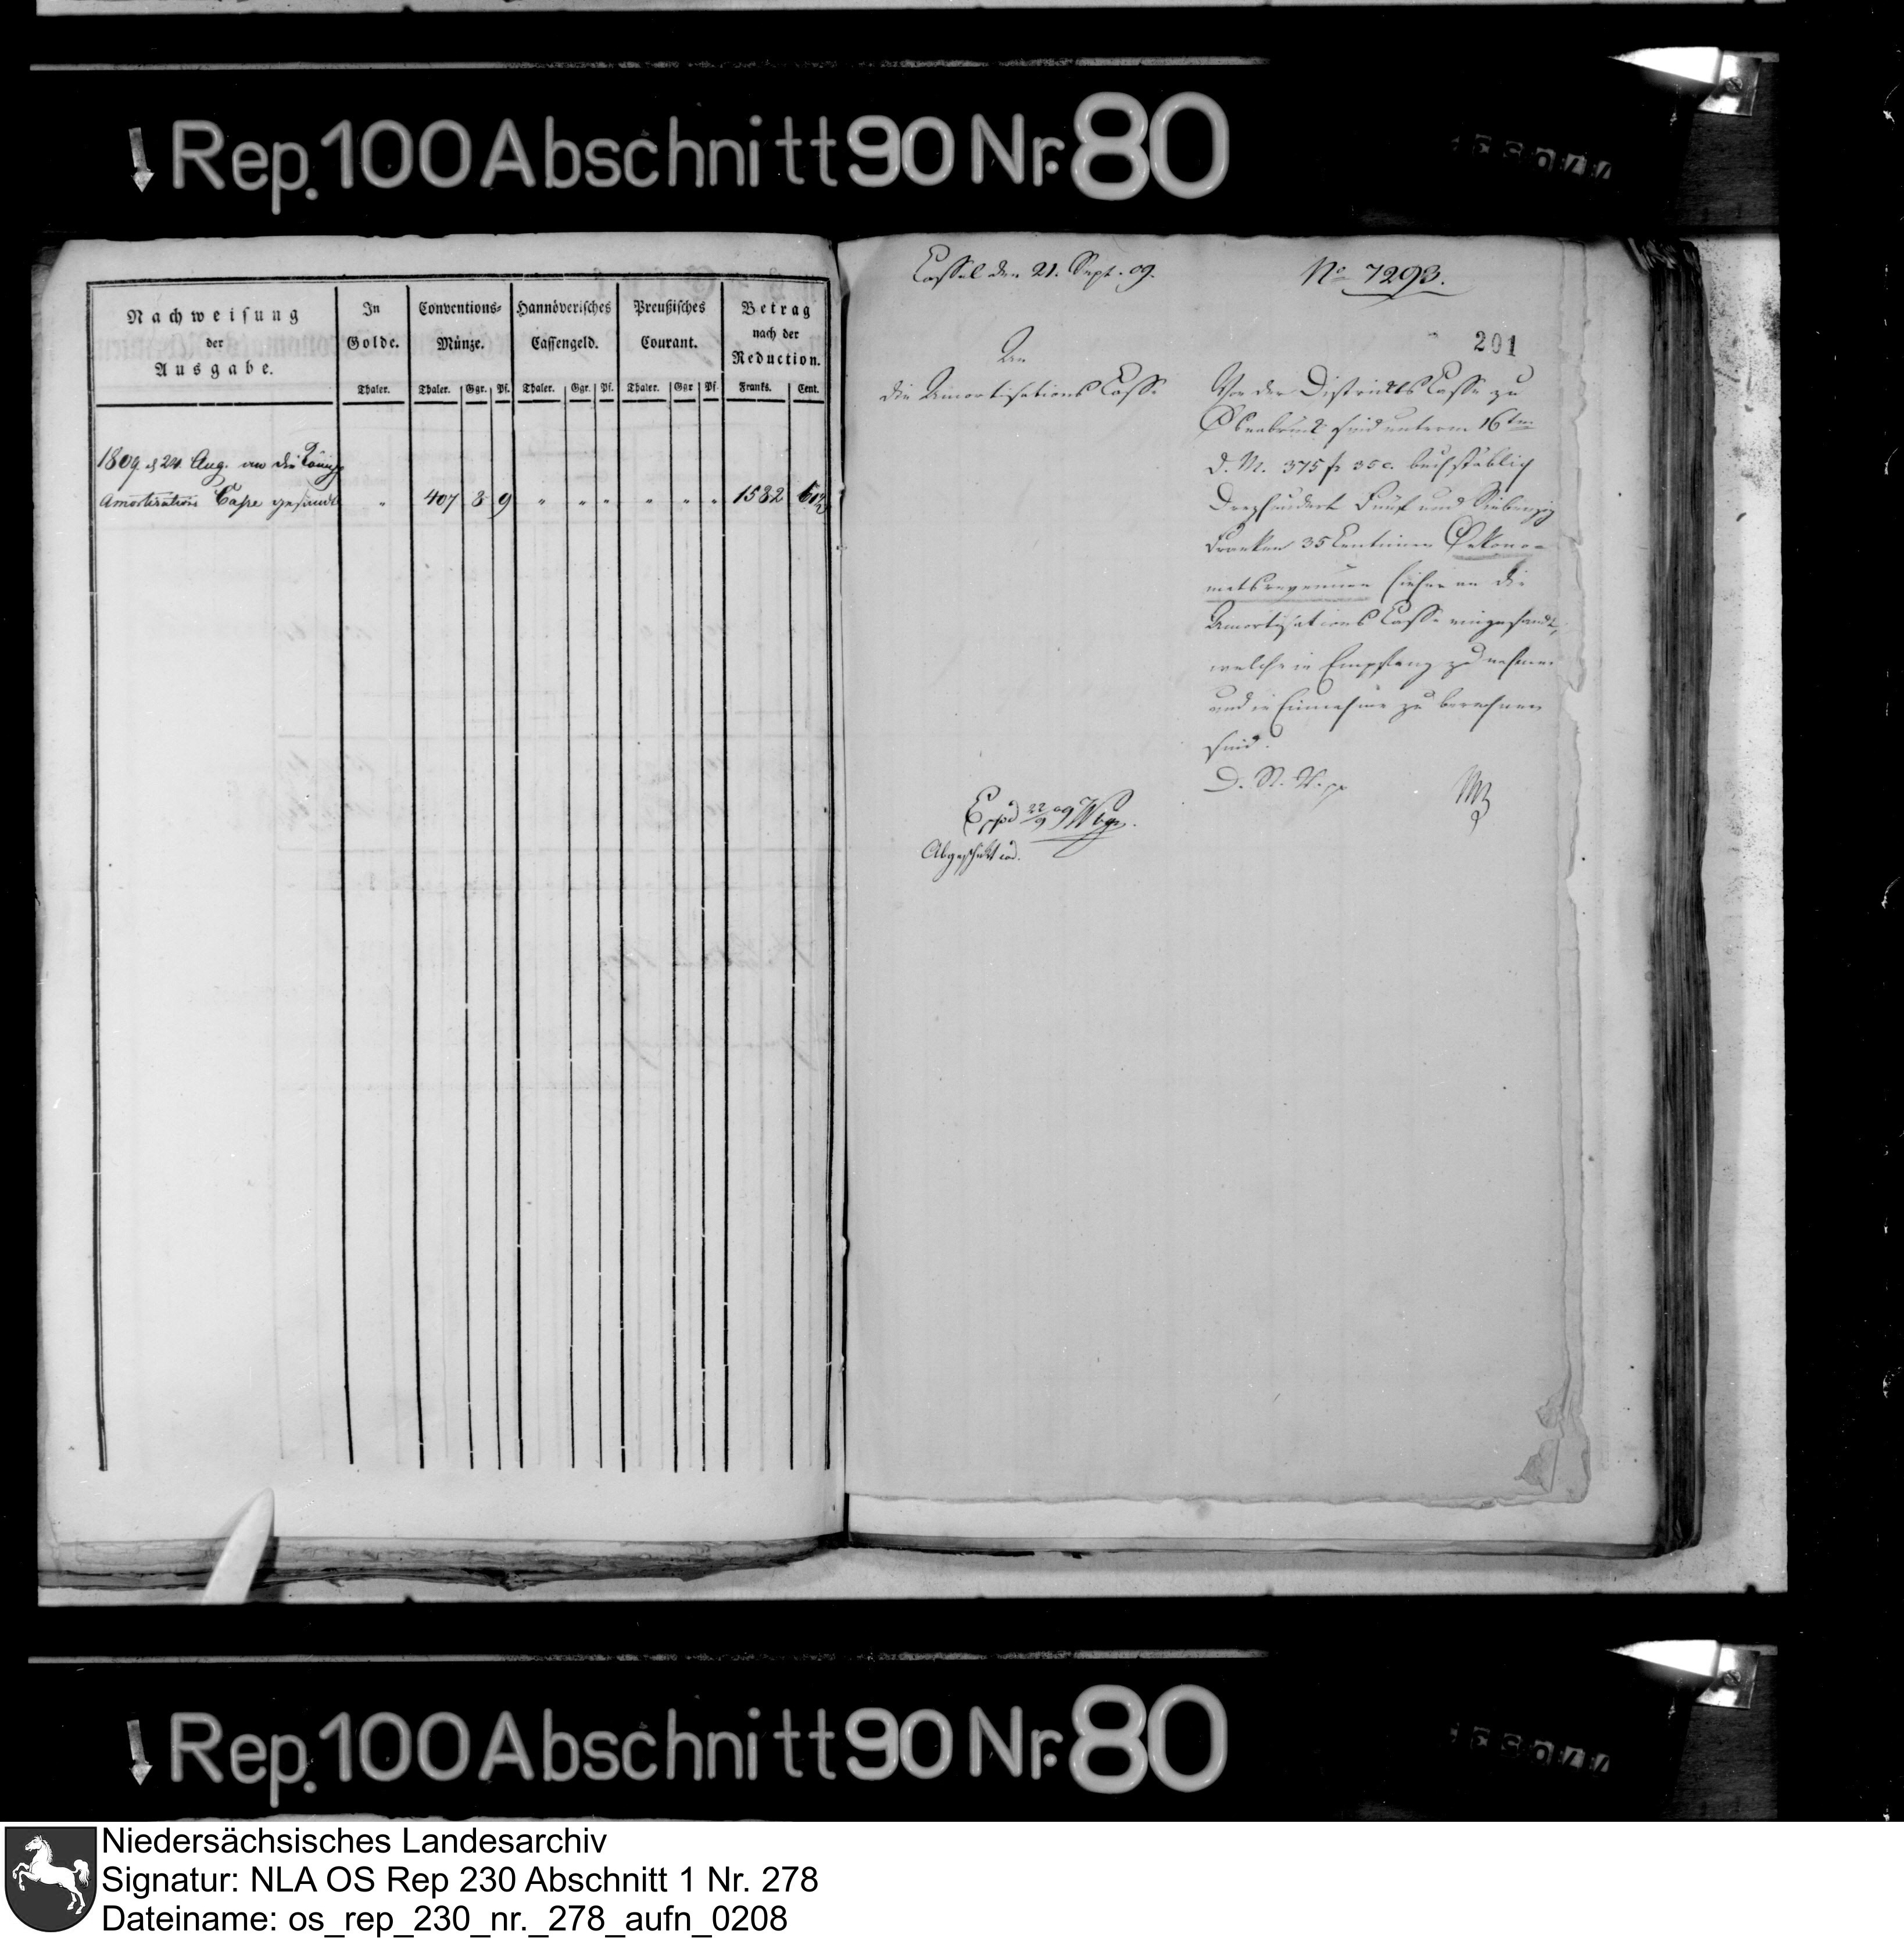 Rep. 100 Abschnitt 90 Nr. 80
Nachweisung
der
Ausgabe.
In
Golde.
Thaler.
Conventions-
Münze.
Thaler. Ggr. Pf.
Hannöverisches
Cassengeld.
Thaler. Ggr. Pf.
Preußisches
Courant.
Thaler. Ggr Pf
Betrag
nach der
Reduction.
Franks. Cent.
1809 d 24 Aug. an die
Amortisations Casse gesandt " 407 8 9 " " " " " " 1582
Cassel den 21. Sept. 09.
No 7293.
201
An
die Amortisations Casse
Von der Districts Casse zu
Osnabrück sind unterm 16ten
d. M. 375 fr 35 c. buchstäblich
Dreyhundert Fünf und Siebenzig
Franken 35 Centimen Oekono-
matsrevenuen hieher an die
Amortisations Casse eingesandt,
welche in Empfang zu nehmen
und in Einnahme zu berechnen
sind.
D. St. R. pp
Exped 22/9 09
Abgeschickt eod.
Rep. 100 Abschnitt 90 Nr. 80
Niedersächsisches Landesarchiv
Signatur: NLA OS Rep 230 Abschnitt 1 Nr. 278
Dateiname: os_rep_230_nr._278_aufn_0208